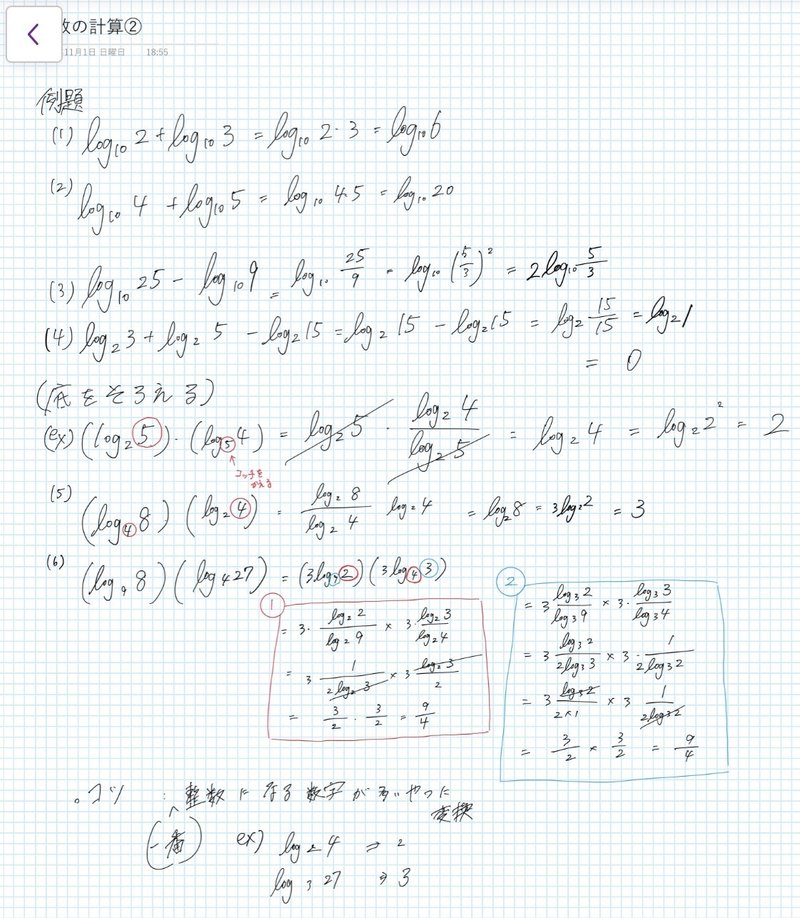 数の計算②
11月1日 日曜日 18:55
例題
(1) log₁₀2 + log₁₀3 = log₁₀2・3 = log₁₀6
(2) log₁₀4 + log₁₀5 = log₁₀4・5 = log₁₀20
(3) log₁₀25 − log₁₀9 = log₁₀ 25/9 = log₁₀(5/3)² = 2log₁₀ 5/3
(4) log₂3 + log₂5 − log₂15 = log₂15 − log₂15 = log₂ 15/15 = log₂1
= 0
(底をそろえる)
(ex) (log₂5)・(log₅4) = log₂5 ・ log₂4/log₂5 = log₂4 = log₂2² = 2
↑
コッチを
かえる
(5) (log₄8)(log₂4) = log₂8/log₂4 log₂4 = log₂8 = 3log₂2 = 3
(6) (log₉8)(log₄27) = (3log₉2)(3log₄3)
①
= 3・ log₂2/log₂9 × 3 log₂3/log₂4
= 3 1/2log₂3 × 3 log₂3/2
= 3/2 ・ 3/2 = 9/4
②
= 3 log₃2/log₃9 × 3・ log₃3/log₃4
= 3 log₃2/2log₃3 × 3・ 1/2log₃2
= 3 log₃2/2×1 × 3 1/2log₃2
= 3/2 × 3/2 = 9/4
。コツ : 整数になる数字が多いやつに
変換
^
(一番) ex) log₂4 ⇒ 2
log₃27 ⇒ 3